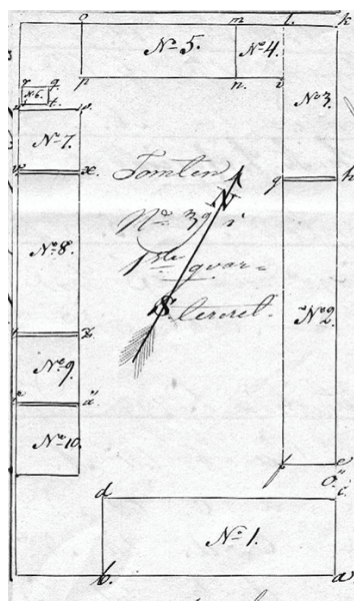 o m l. k
No 5. No 4.
p n. i
r q
No 6.
t. s.
No 3.
No 7.
x.
Tomten
g h
No 39 i
N
No 8.
1ste quar=
S. teret.
No 2.
z.
No 9
a"
No 10.
f e
d c.
No 1.
b. a